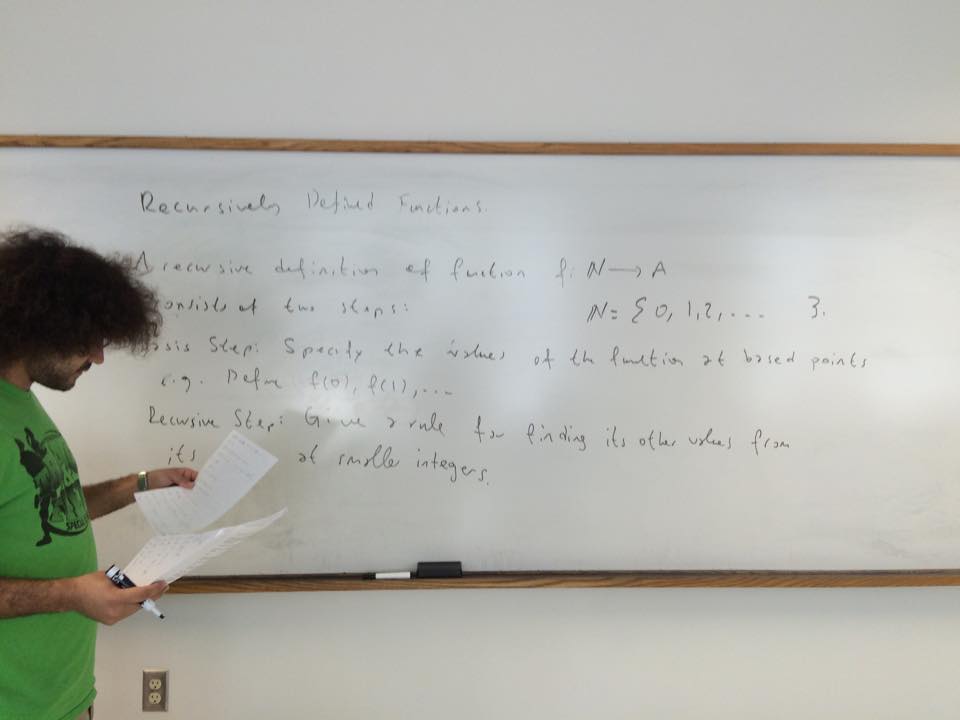 Recursively Defined Functions.
A recursive definition of function f: ℕ → A
onsists of two steps: ℕ = { 0, 1, 2, ... }.
asis Step: Specify the values of the function at based points
e.g. Define f(0), f(1), ...
Recursive Step: Give a rule for finding its other values from
its at smaller integers.